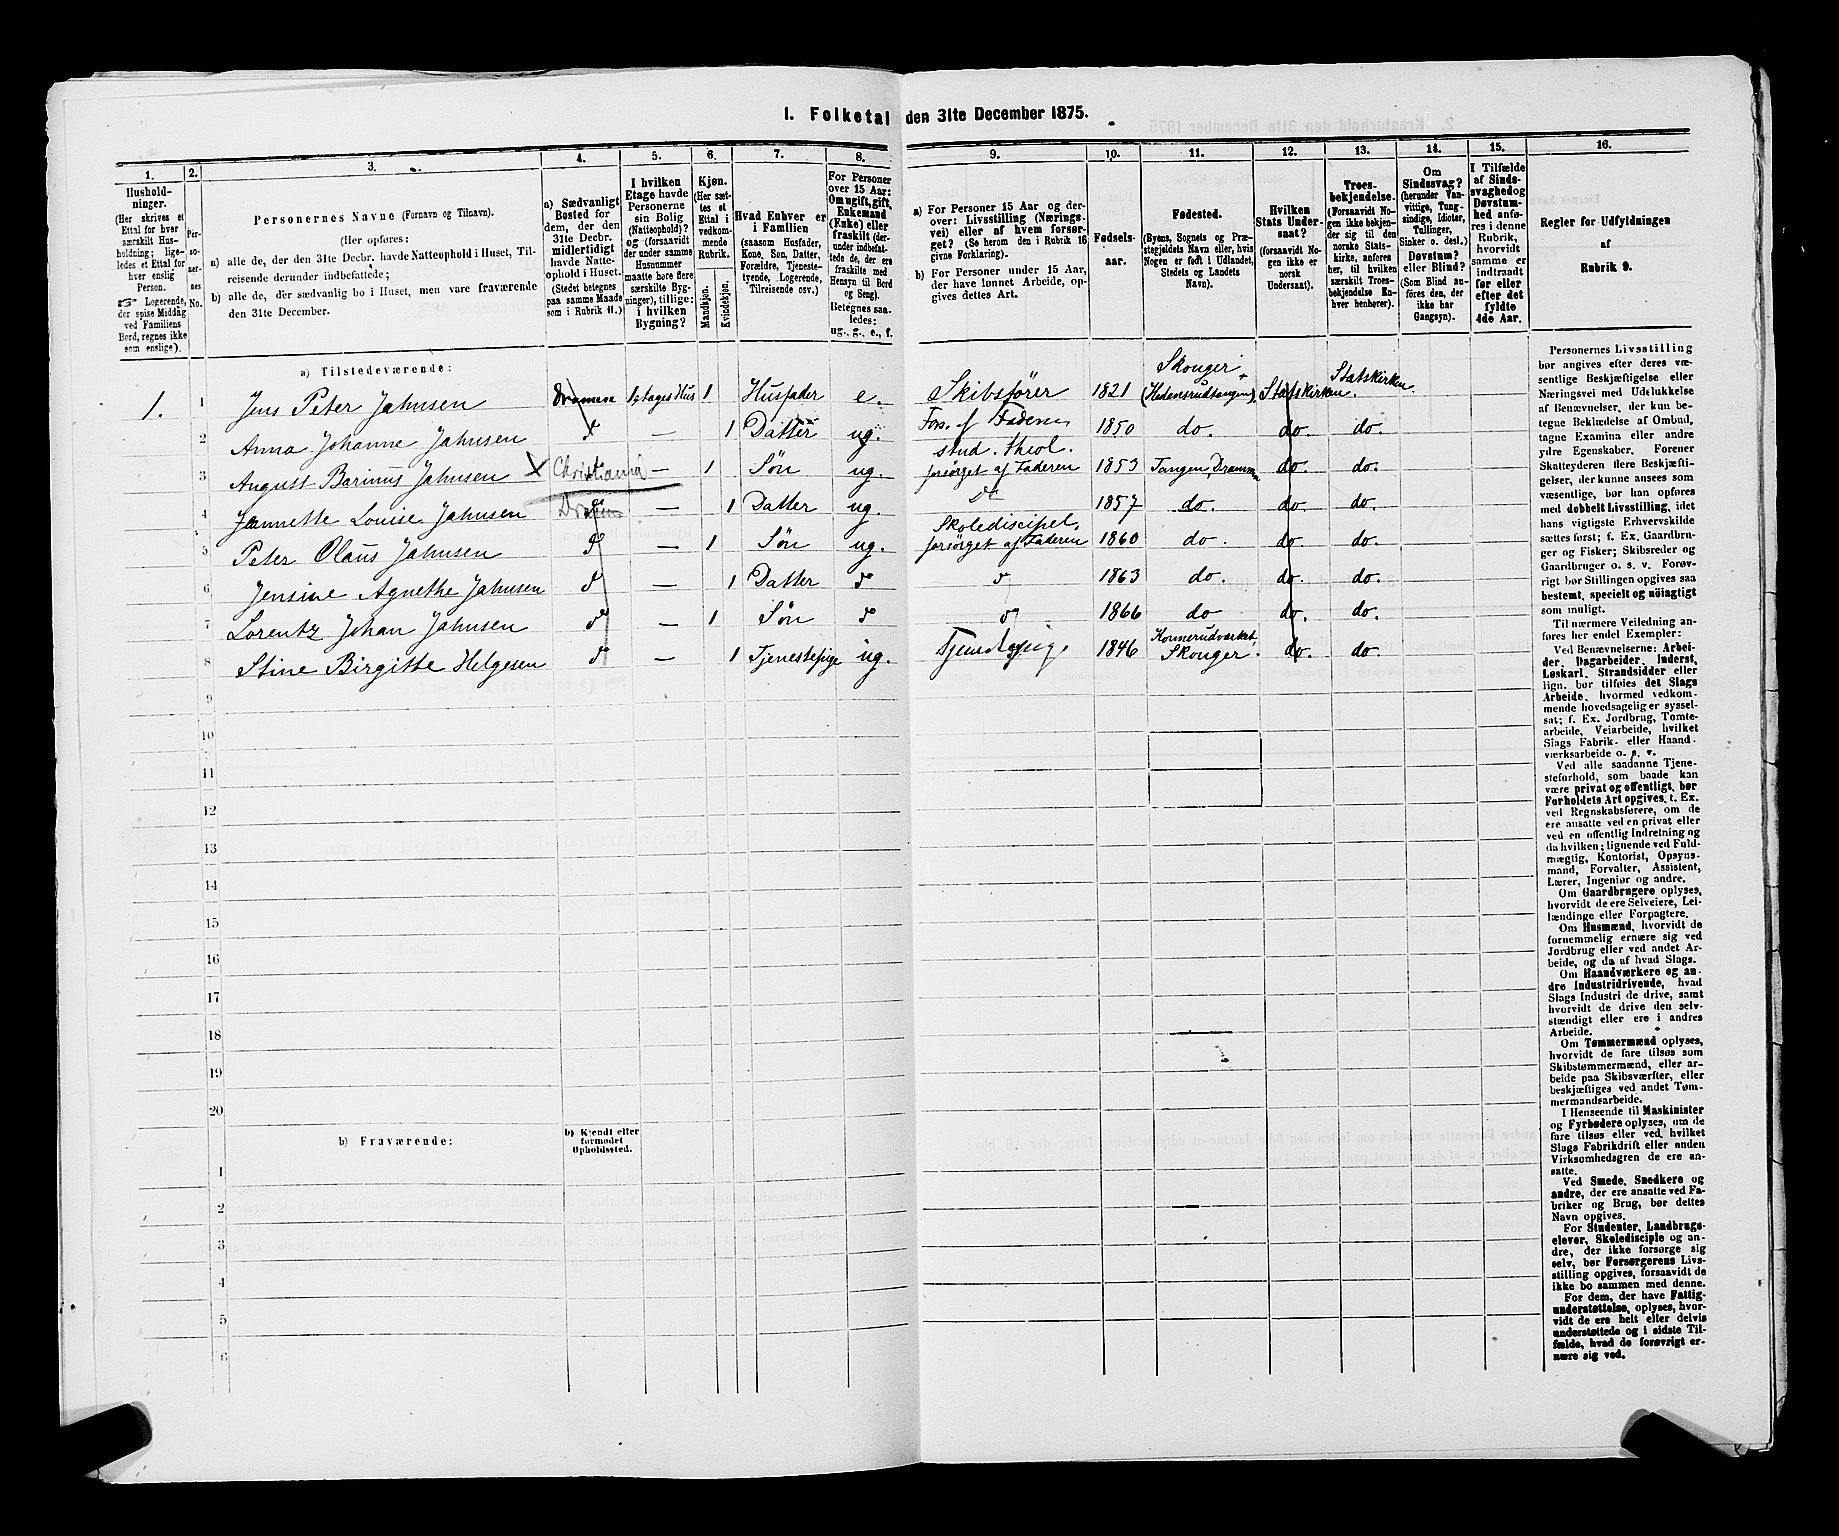 I. Folketal den 31te December 1875.
1. 2. 3. 4. 5. 6. 7. 8. 9. 10. 11. 12. 13. 14. 15. 16.
Hushold-
ninger.
(Her skrives et
Ettal for hver
særskilt Hus-
holdning; lige-
ledes et Ettal for
hver enslig
Person.
☞ Logerende,
der spise Middag
ved Familiens
Bord, regnes ikke
som enslige).
Per-
so-
ner-
nes
No.
Personernes Navne (Fornavn og Tilnavn).
(Her opføres:
a) alle de, der den 31te Decbr. havde Natteophold i Huset, Til-
reisende derunder indbefattede;
b) alle de, der sædvanlig bo i Huset, men vare fraværende
den 31te December.
a) Sædvanligt
Bosted for
dem, der den
31te Decbr.
midlertidigt
havde Natte-
ophold i Huset.
(Stedet betegnes
paa samme Maade
som i Rubrik 11.)
I hvilken
Etage havde
Personerne
sin Bolig
(Natteophold)?
og (forsaavidt
der under samme
Husnummer
maatte høre flere
særskilte Byg-
ninger), tillige:
i hvilken
Bygning?
Kjøn.
(Her sæt-
tes et
Ettal i
vedkom-
mende
Rubrik.
Mandkjøn.
Kvindekjøn.
Hvad Enhver er
i Familien
(saasom Husfader,
Kone, Søn, Datter,
Forældre, Tjeneste-
tyende, Logerende,
Tilreisende osv.)
For Personer
over 15 Aar:
Om ugift, gift,
Enkemand
(Enke) eller
fraskilt (der-
under indbefat-
tede de, der ere
fraskilte med
Hensyn til Bord
og Seng).
Betegnes saa-
ledes:
ug., g., e., f.
a) For Personer 15 Aar og der-
over: Livsstilling (Nærings-
vei) eller af hvem forsør-
get? (Se herom den i Rubrik 16
givne Forklaring).
b) For Personer under 15 Aar,
der have lønnet Arbeide, op-
gives dettes Art.
Fødsels-
aar.
Fødested.
(Byens, Sognets og Præ-
stegjeldets Navn eller, hvis
Nogen er født i Udlandet,
Stedets og Landets
Navn).
Hvilken
Stats Under-
saat?
(forsaavidt No-
gen ikke er
norsk
Undersaat).
Troes-
bekjendelse.
(Forsaavidt No-
gen ikke bekjen-
der sig til den
norske Stats-
kirke, anføres
her, til hvilken
særskilt Troes-
bekjendelse En-
hver henhører).
Om
Sindssvag?
(herunder Van-
vittige, Tung-
sindige, Idioter,
Tullinger,
Sinker o. desl.)
Døvstum?
eller Blind?
(Som Blind an-
føres den, der
ikke har
Gangsyn).
I Tilfælde
af Sinds-
svaghed og
Døvstum-
hed anfø-
res i denne
Rubrik,
hvorvidt
samme er
indtraadt
før eller
efter det
fyldte
4de Aar.
Regler for Udfyldningen
af
Rubrik 9.
a) Tilstedeværende:
1. 1 Jens Peter Jahnsen Drammen 1 Etages Hus 1 Husfader e. Skibsfører 1821 Skouger (Hedensrudtangen) Statskirken Statskirken.
2 Anna Johanne Jahnsen do — 1 Datter ug. Fors. af Faderen 1850 do. do. do.
3 August Barinus Jahnsen X Christiania — 1 Søn ug. stud. theol. forsørget af Faderen 1853 Tangen, Drammen do. do.
4 Jannette Louise Jahnsen Dramm — 1 Datter ug. Do 1857 do. do. do.
5 Peter Olaus Jahnsen do — 1 Søn ug. Skolediscipel, forsørget af Faderen 1860 do. do. do.
6 Jensine Agnethe Jahnsen do — 1 Datter do do 1863 do. do. do.
7 Lorentz Johan Jahnsen do — 1 Søn do do 1866 do do. do.
8 Stine Birgitte Helgesen do — 1 Tjenestepige ug. Tjenestepige 1846 Konnerudværket, Skouger. do. do.
9
10
11
12
13
14
15
16
17
18
19
20
b) Fraværende:
b) Kjendt eller
formodet
Opholdssted.
1
2
3
4
5
6
Personernes Livsstilling
bør angives efter deres væ-
sentlige Beskjæftigelse eller
Næringsvei med Udelukkelse
af Benævnelser, der kun be-
tegne Beklædelse af Ombud,
tagne Examina eller andre
ydre Egenskaber. Forener
Skatteyderen flere Beskjæfti-
gelser, der kunne ansees som
væsentlige, bør han opføres
med dobbelt Livsstilling, idet
hans vigtigste Erhvervskilde
sættes først; f. Ex. Gaardbru-
ger og Fisker; Skibsreder og
Gaardbruger o. s. v. Forøv-
rigt bør Stillingen opgives saa
bestemt, specielt og nøiagtigt
som muligt.
Til nærmere Veiledning an-
føres her endel Exempler:
Ved Benævnelserne: Arbei-
der, Dagarbeider, Inderst,
Løskarl, Strandsidder eller
lign. bør tilføies det Slags
Arbeide, hvormed vedkom-
mende hovedsagelig er syssel-
sat; f. Ex. Jordbrug, Tomte-
arbeide, Veiarbeide, hvilket
Slags Fabrik- eller Haand-
værksarbeide o. s. v.
Ved alle saadanne Tjene-
steforhold, som baade kan
være privat og offentligt, bør
Forholdets Art opgives, t. Ex.
ved Regnskabsførere, om de
ere ansatte ved en privat eller
ved en offentlig Indretning og
da hvilken; lignende ved Fuld-
mægtig, Kontorist, Opsyns-
mand, Forvalter, Assistent,
Lærer, Ingeniør og andre.
Om Gaardbrugere oplyses,
hvorvidt de ere Selveiere, Lei-
lændinge eller Forpagtere.
Om Husmænd, hvorvidt de
fornemmelig ernære sig ved
Jordbrug eller ved andet Ar-
beide, og da af hvad Slags.
Om Haandværkere og an-
dre Industridrivende, hvad
Slags Industri de drive, samt
hvorvidt de drive den selv-
stændigt eller ere i andres
Arbeide.
Om Tømmermænd oplyses,
hvorvidt de fare tilsøs som
Skibstømmermænd, eller ar-
beide paa Skibsværfter, eller
beskjæftiges ved andet Tøm-
mermandsarbeide.
I Henseende til Maskinister
og Fyrbødere oplyses, om de
fare tilsøs eller ved hvilket
Slags Fabrikdrift eller anden
Virksomhedsgren de ere an-
satte.
Ved Smede, Snedkere og
andre, der ere ansatte ved Fa-
briker og Brug, bør dettes
Navn opgives.
For Studenter, Landbrugs-
elever, Skoledisciple og an-
dre, der ikke forsørge sig
selv, bør Forsørgerens Livs-
stilling opgives, forsaavidt de
ikke bo sammen med denne.
For dem, der have Fattig-
understøttelse, oplyses, hvor-
vidt de ere helt eller delvis
understøttede og i sidste Til-
fælde, hvad de forøvrigt er-
nære sig ved.